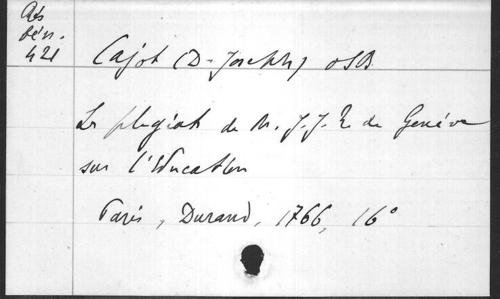 Rés
bén.
421
Cajot (D. Joseph) OSB
Les plagiats de M. J.J. R de Genève
sur l'Education
Paris, Durand, 1766, 16°